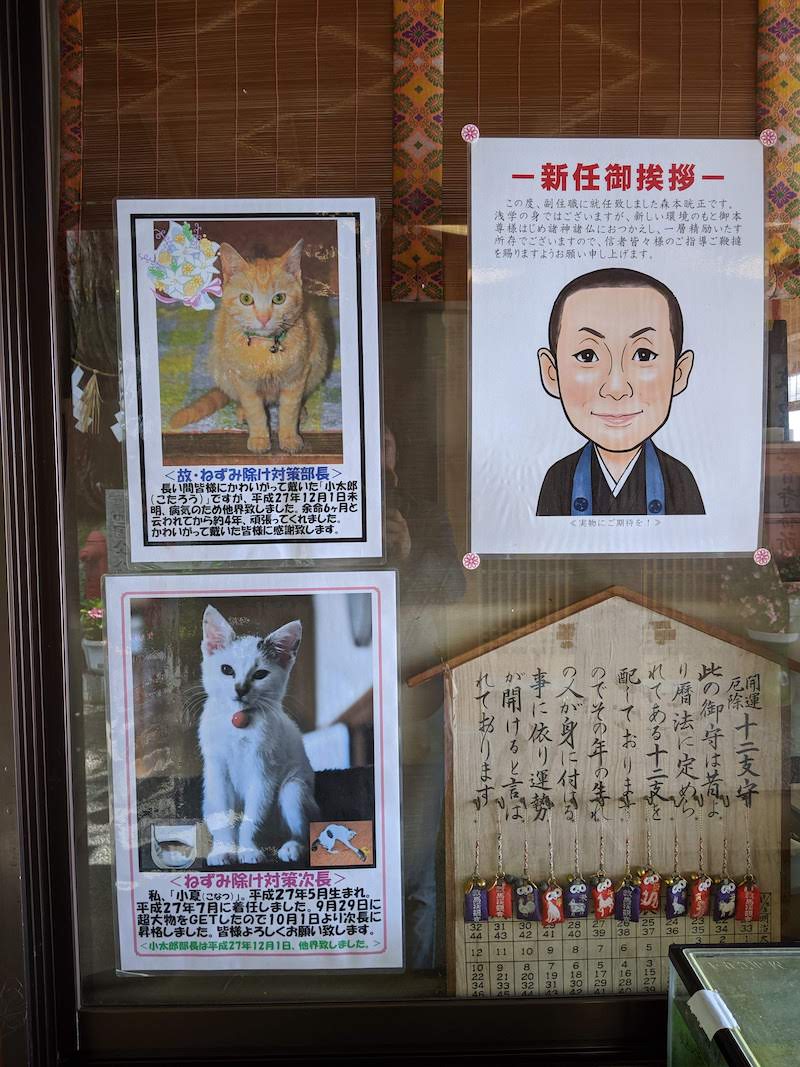 <故・ねずみ除け対策部長>
長い間皆様にかわいがって戴いた「小太郎
(こたろう)」ですが、平成27年12月1日未
明、病気のため他界致しました。余命6ヶ月と
云われてから約4年、頑張ってくれました。
かわいがって戴いた皆様に感謝致します。
<ねずみ除け対策次長>
私、「小夏(こなつ)」。平成27年5月生まれ。
平成27年7月に着任しました。9月29日に
超大物をGETしたので10月1日より次長に
昇格しました。皆様よろしくお願い致します。
<小太郎部長は平成27年12月1日、他界致しました。>
ー新任御挨拶ー
この度、副住職に就任致しました森本晄正です。
浅学の身ではございますが、新しい環境のもと御本
尊様はじめ諸神諸仏におつかえし、一層精励いたす
所存でございますので、信者皆々様のご指導ご鞭撻
を賜りますようお願い申し上げます。
≪実物にご期待を!≫
開運
厄除
十二支守
此の御守は昔よ
り暦法に定めら
れてある十二支を
配しております
のでその年の生れ
の人が身に付ける
事に依り運勢
が開けると言は
れております